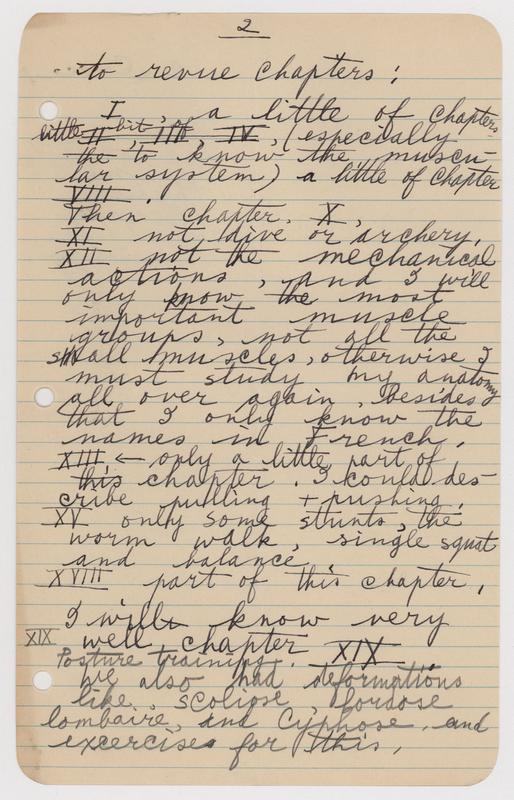 2
to revue chapters:
I, a little of chapters
little II, bit III of, IV, (especially
the to know the muscu-
lar system) a little of chapter
VIII.
Then chapter. X,
XI not dive or archery.
XII not the mechanical
actions, and I will
only know the most
important muscle
groups, not all the
small muscles, otherwise I
must study my anatomy
all over again. Besides
that I only know the
names in French.
XIII ← only a little part of
this chapter. I could des-
cribe pulling + pushing.
XV only some stunts, the
worm walk, single squat
and balance
XVIII part of this chapter.
I will know very
XIX well chapter XIX.
Posture training.
We also had deformations
like scoliose, lordose
lombaire, and Cyphose. and
excercises for this.